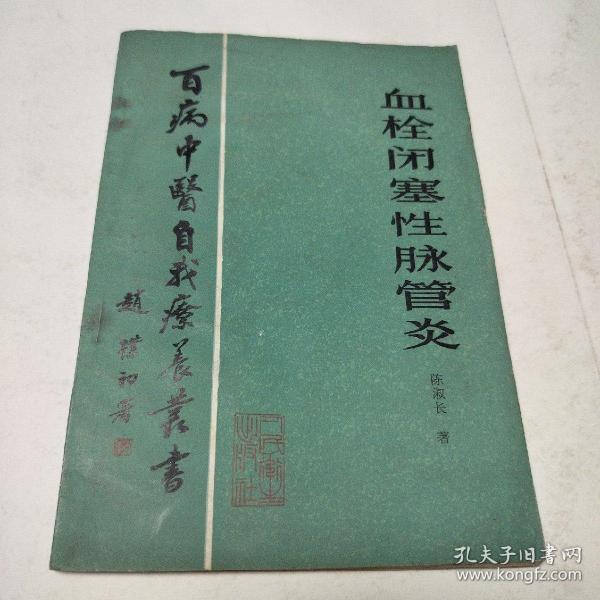 血栓闭塞性脉管炎
陈淑长 著
百病中醫自我療養叢書
趙樸初署
人民衛生出版社
孔夫子旧书网
www.kongfz.com